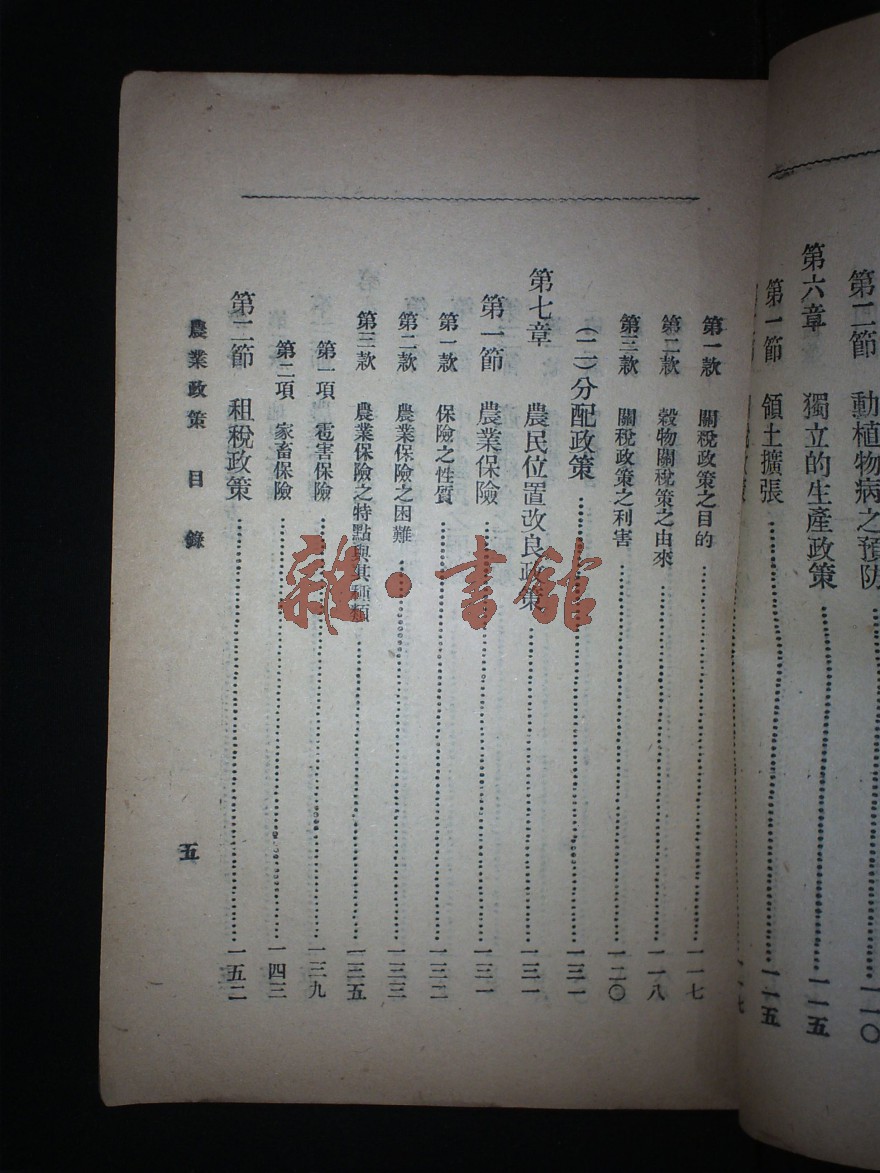 第二節　動植物病之預防……一一〇
第六章　獨立的生產政策……一一五
第一節　領土擴張……一一五
第一款　關稅政策之目的……一一七
第二款　穀物關稅策之由來……一一八
第三款　關稅政策之利害……一二〇
（二）分配政策……一三一
第七章　農民位置改良政策……一三一
第一節　農業保險……一三一
第一款　保險之性質……一三二
第二款　農業保險之困難……一三三
第三款　農業保險之特點與其種類……一三五
第一項　雹害保險……一三九
第二項　家畜保險……一四三
第二節　租稅政策……一五二
農業政策　目錄　五
雜·書館